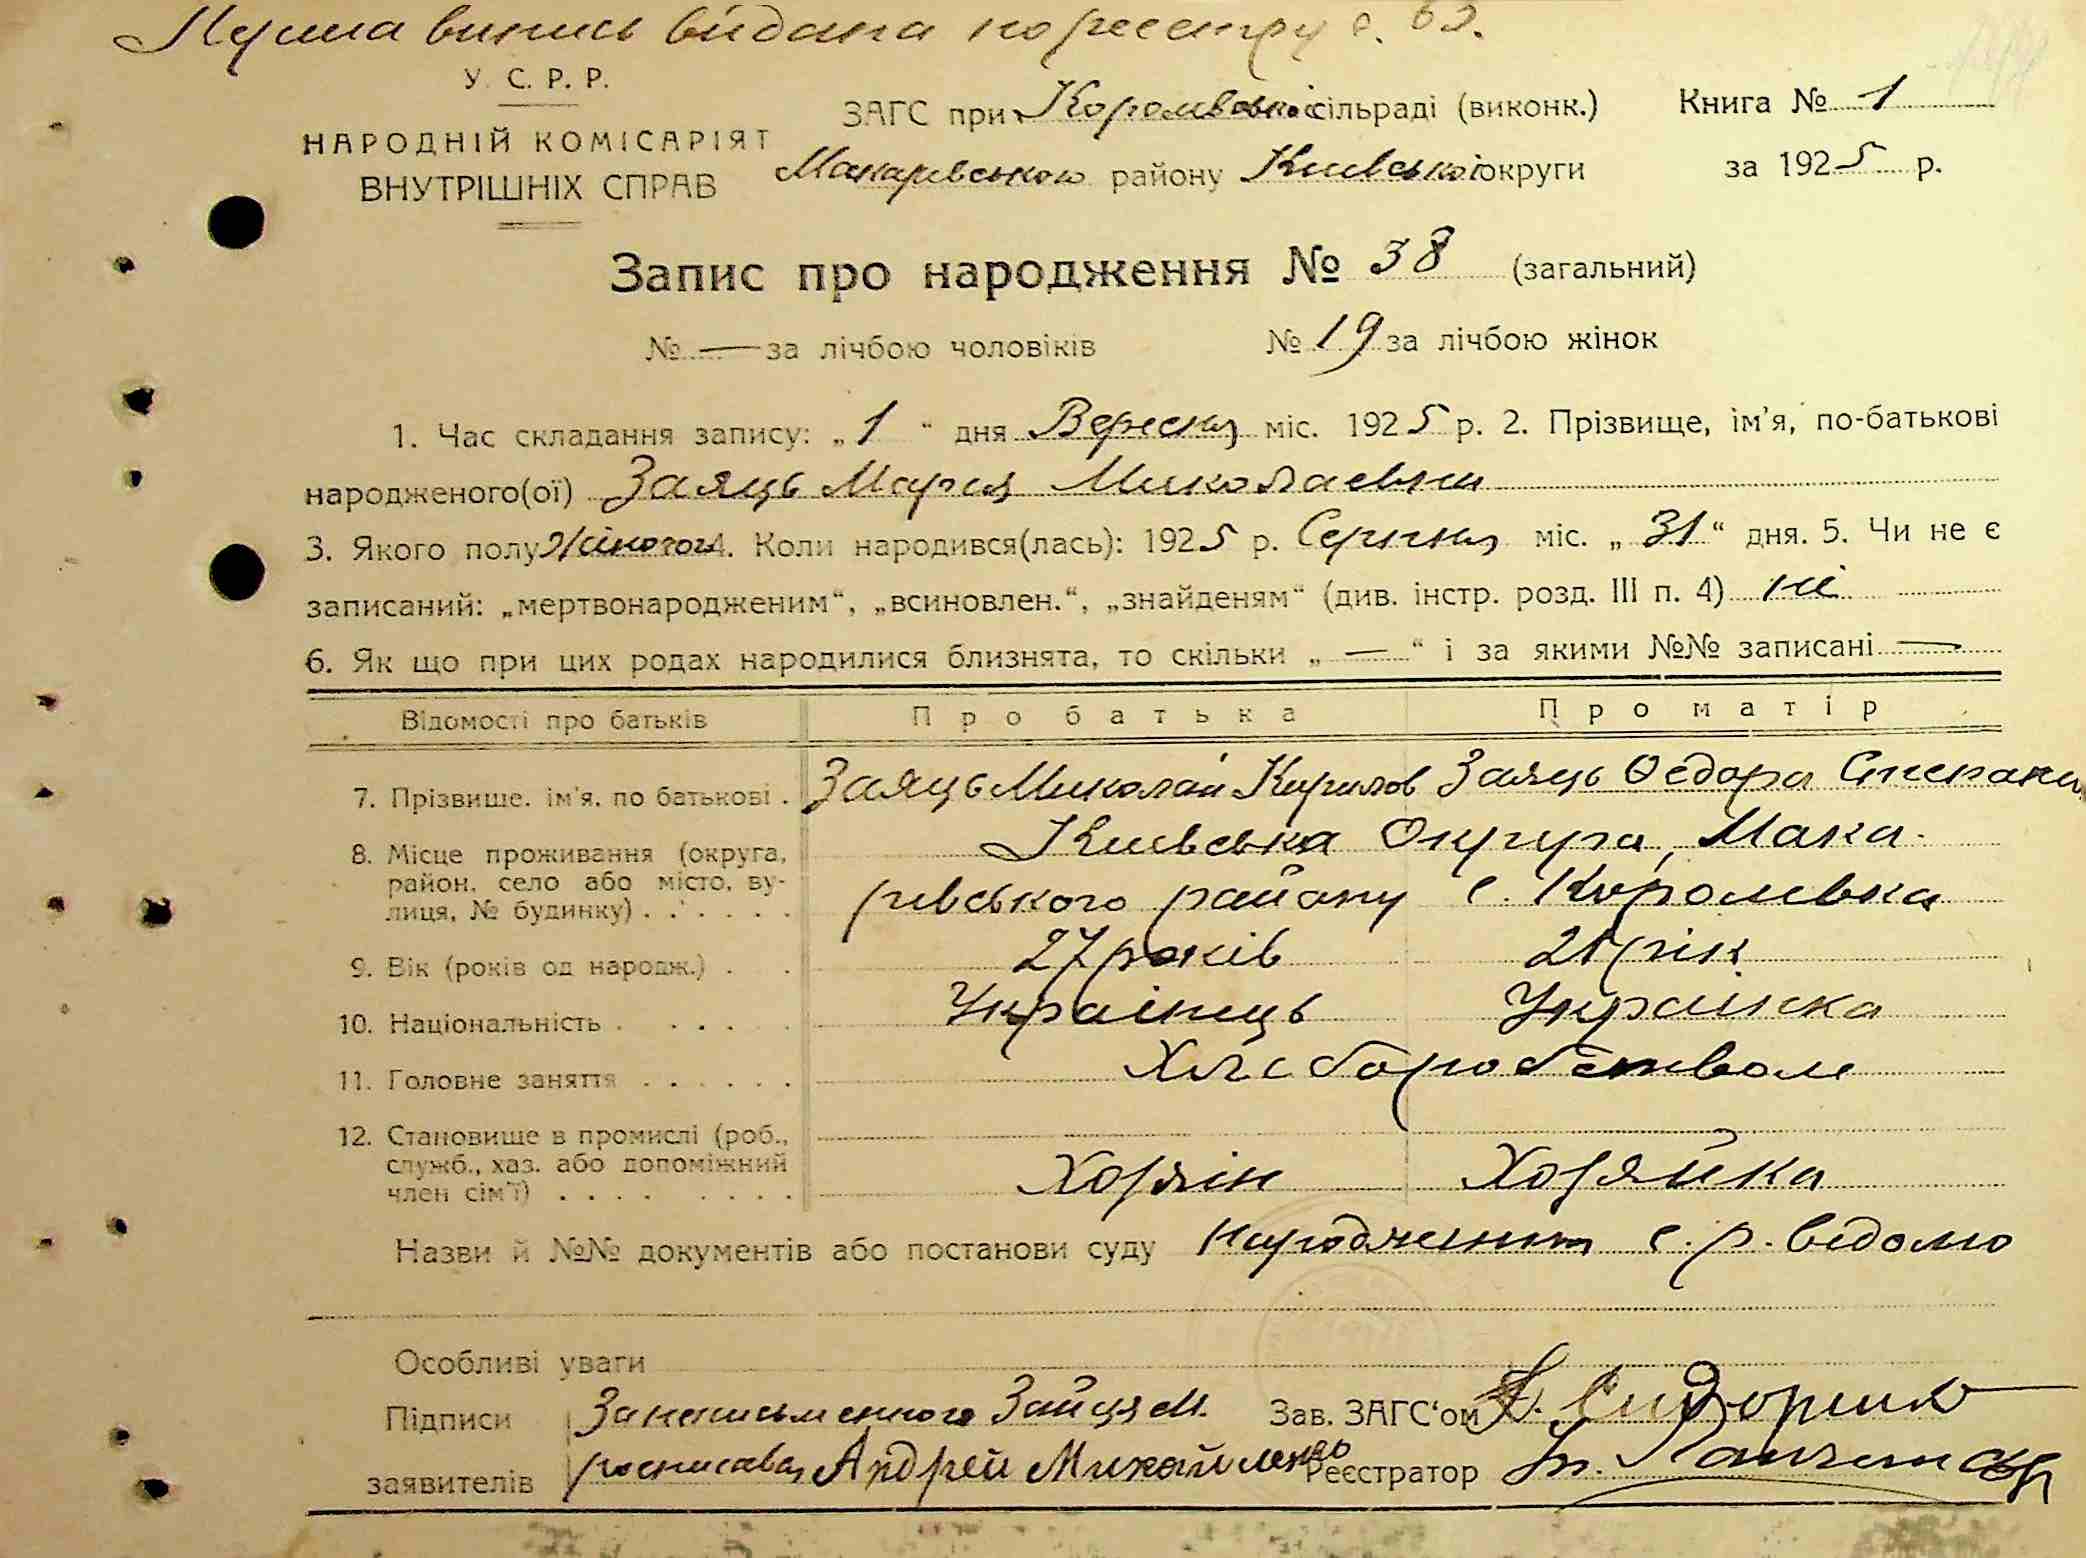 Перша випись видана по реєстру с. 63.
У. С. Р. Р.
НАРОДНІЙ КОМІСАРІЯТ
ВНУТРІШНІХ СПРАВ
ЗАГС при Королівській сільраді (виконк.) Книга № 1
Макарівського району Київської округи за 1925 р.
Запис про народження № 38 (загальний)
№ — за лічбою чоловіків № 19 за лічбою жінок
1. Час складання запису: „ 1 “ дня Вересня міс. 1925 р. 2. Прізвище, ім'я, по-батькові
народженого(ої) Заяць Марія Миколаєвни
3. Якого полу Жіночого 4. Коли народився(лась): 1925 р. Серпня міс. „ 31 “ дня. 5. Чи не є
записаний: „мертвонародженим“, „всиновлен.“, „знайденям“ (див. інстр. розд. III п. 4) ні
6. Як що при цих родах народилися близнята, то скільки „ — “ і за якими №№ записані —
Відомості про батьків Про батька Про матір
7. Прізвище, ім'я, по батькові . Заяць Миколай Кирилов Заяць Федора Степана
8. Місце проживання (округа, район, село або місто, вулиця, № будинку) . . . . . . Київська Округа, Мака-
рівського району с. Королівка
9. Вік (років од народж.) . . 27 років 21 рік
10. Національність . . . . . Українець Українка
11. Головне заняття . . . . . . Хліборобством
12. Становище в промислі (роб., служб., хаз. або допоміжний член сім'ї) . . . . . . . . Хозяїн Хозяйка
Назви й №№ документів або постанови суду народження с. р. відомо
Особливі уваги
Підписи За неписьменного Зайця М. Зав. ЗАГС'ом
заявителів росписався Андрей Михайленко Реєстратор